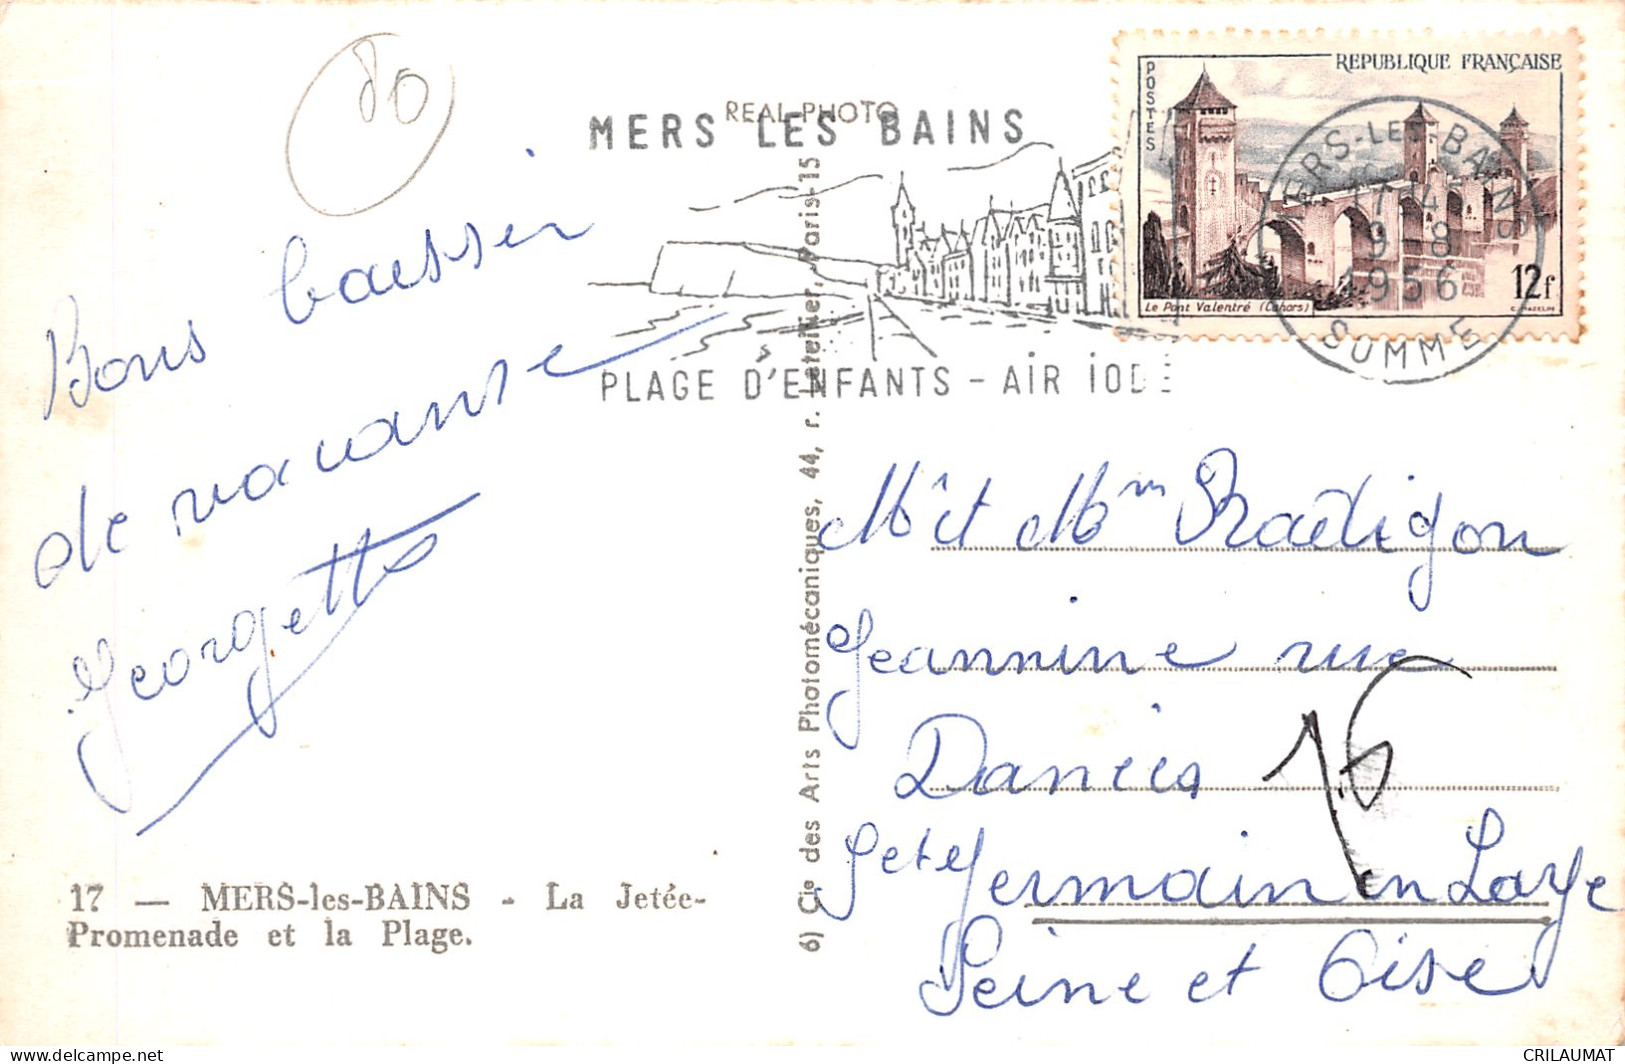 80
REAL-PHOTO
MERS LES BAINS
PLAGE D'ENFANTS - AIR IODÉ
POSTES
REPUBLIQUE FRANÇAISE
Le Pont Valentré (Cahors)
12f
MERS-LES-BAINS
17 H
9-8
1956
SOMME
Bons baisser
de vacanse
Georgette
17 — MERS-les-BAINS - La Jetée-
Promenade et la Plage.
6) Cie des Arts Photomécaniques, 44, r. Letellier, Paris-15
Mr et Mme
Jeannine rue
Danies 16
St Germain en Laye
Seine et Oise
CRILAUMAT
delcampe.net